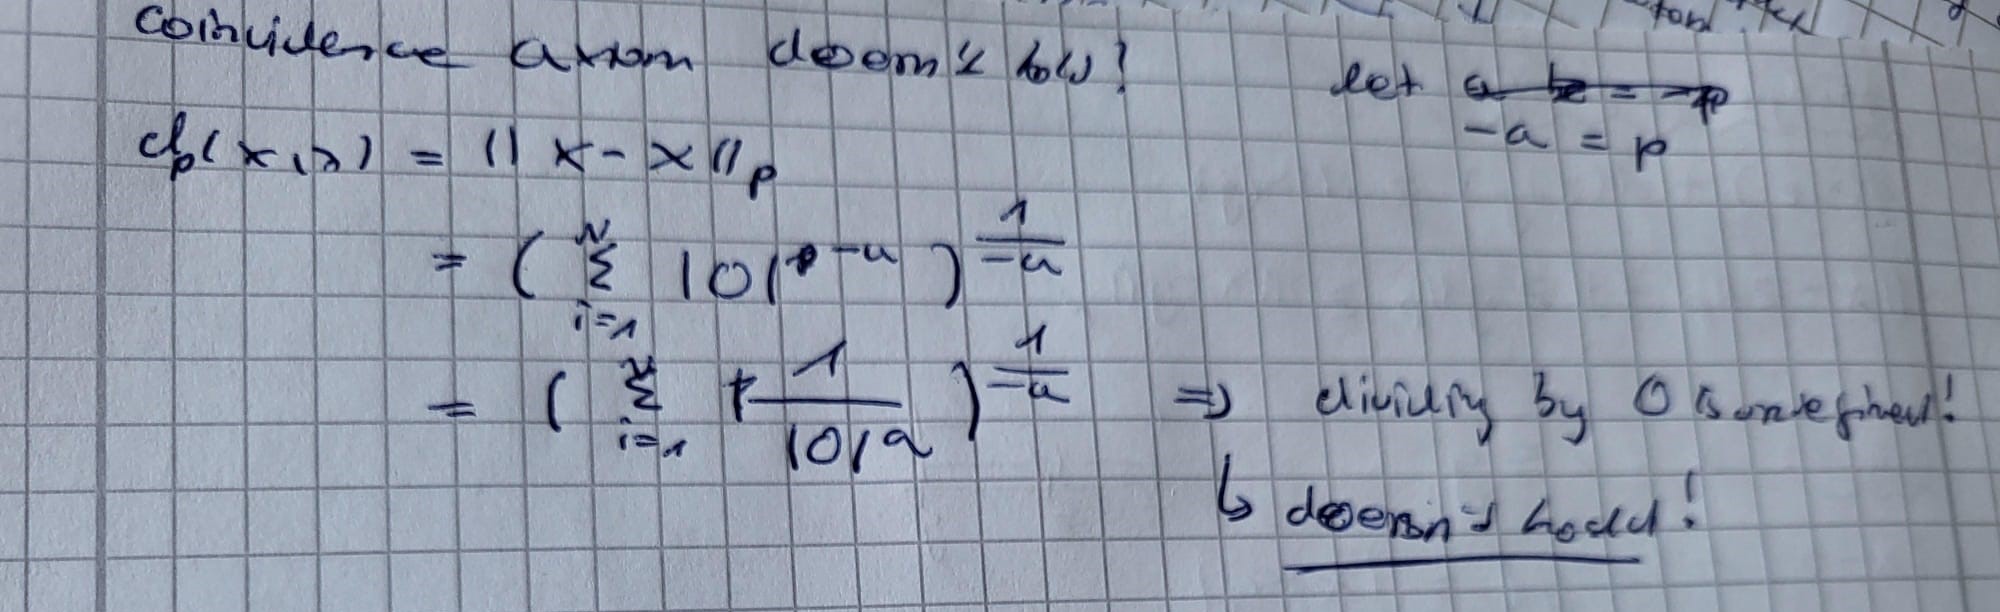 Coincidence axiom doesn't hold!
let a = -p
-a = p
dp(x,x) = || x - x ||p
= ( N Σ i=1 |0|^-a )^1/-a
= ( N Σ i=1 1/|0|^a )^1/-a => dividing by 0 is undefined!
↳ doesn't hold!